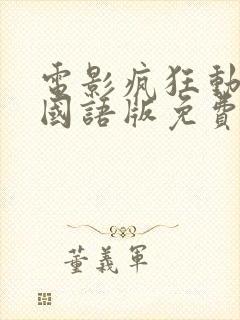 電影瘋狂動
國語版免費
董義軍